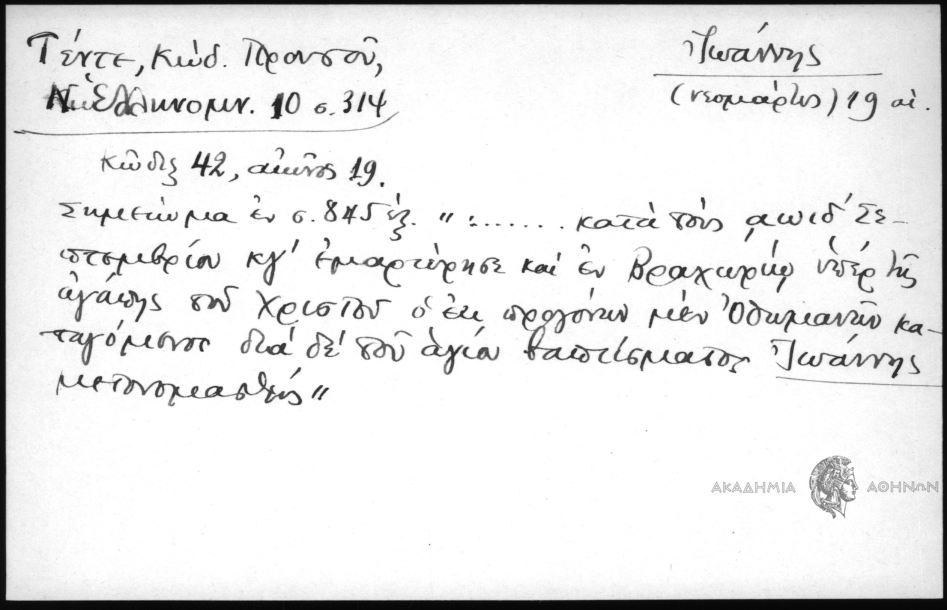 Τέντε, Κώδ. Προυσοῦ,
Ν. Ἑλληνομν. 10 σ. 314
Ἰωάννης
(νεομάρτυς) 19 αἰ.
Κῶδιξ 42, αἰῶνος 19.
Σημείωμα ἐν σ. 845 ἑξ. " : ....... κατὰ τοὺς ͵αωιδ' Σε-
πτεμβρίου κγ' ἐμαρτύρησε καὶ ἐν Βραχωρίῳ ὑπέρ τῆς
ἀγάπης τοῦ Χριστοῦ ὁ ἐκ προγόνων μέν Ὀθωμανῶν κα-
ταγόμενος διά δέ τοῦ ἁγίου βαπτίσματος Ἰωάννης
μετονομασθείς "
ΑΚΑΔΗΜΙΑ ΑΘΗΝΩΝ